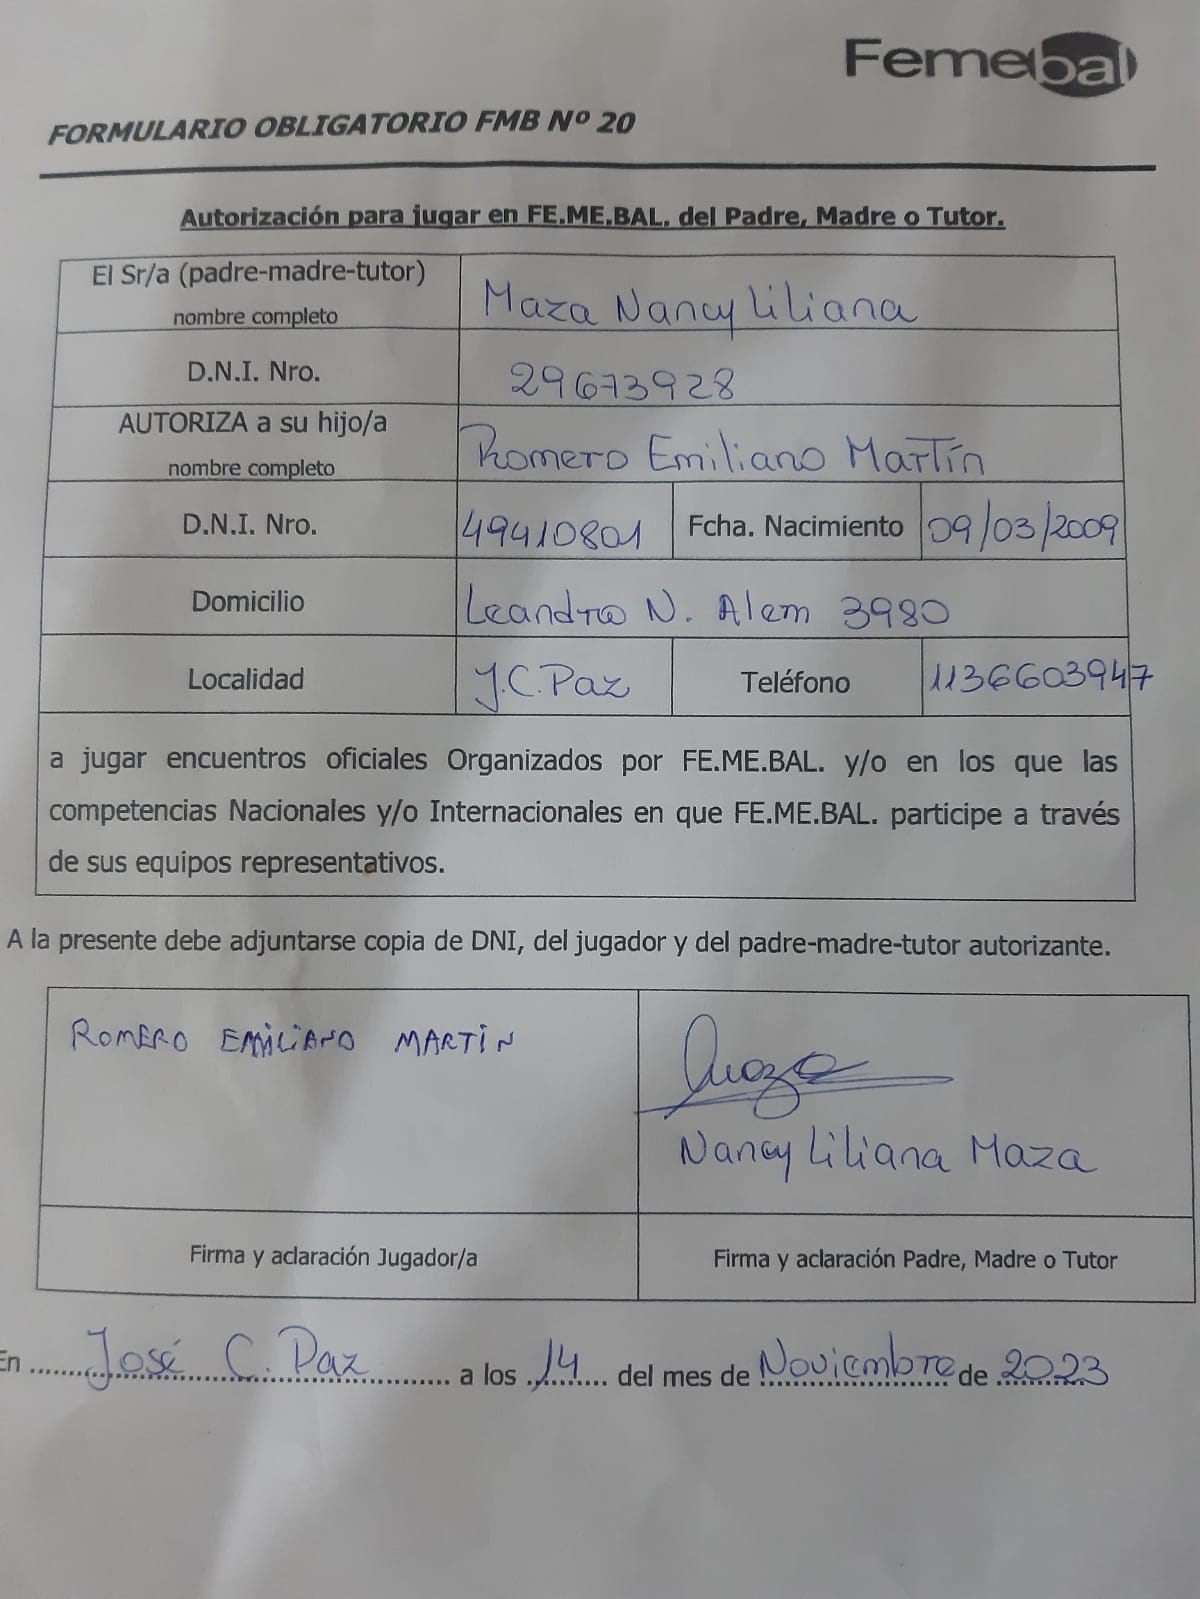 Femebal
FORMULARIO OBLIGATORIO FMB Nº 20
Autorización para jugar en FE.ME.BAL. del Padre, Madre o Tutor.
El Sr/a (padre-madre-tutor)
nombre completo
Maza Nancy Liliana
D.N.I. Nro.
29673928
AUTORIZA a su hijo/a
nombre completo
Romero Emiliano Martín
D.N.I. Nro.
49410801
Fcha. Nacimiento
09/03/2009
Domicilio
Leandro N. Alem 3980
Localidad
J.C. Paz
Teléfono
1136603947
a jugar encuentros oficiales Organizados por FE.ME.BAL. y/o en los que las
competencias Nacionales y/o Internacionales en que FE.ME.BAL. participe a través
de sus equipos representativos.
A la presente debe adjuntarse copia de DNI, del jugador y del padre-madre-tutor autorizante.
ROMERO EMILIANO MARTÍN
Maza
Nancy Liliana Maza
Firma y aclaración Jugador/a
Firma y aclaración Padre, Madre o Tutor
En ....... José C. Paz ........... a los 14 ...... del mes de Noviembre de 2023